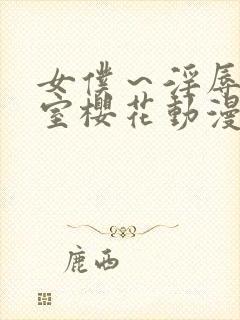 女僕～淫辱
室櫻花動漫
鹿西